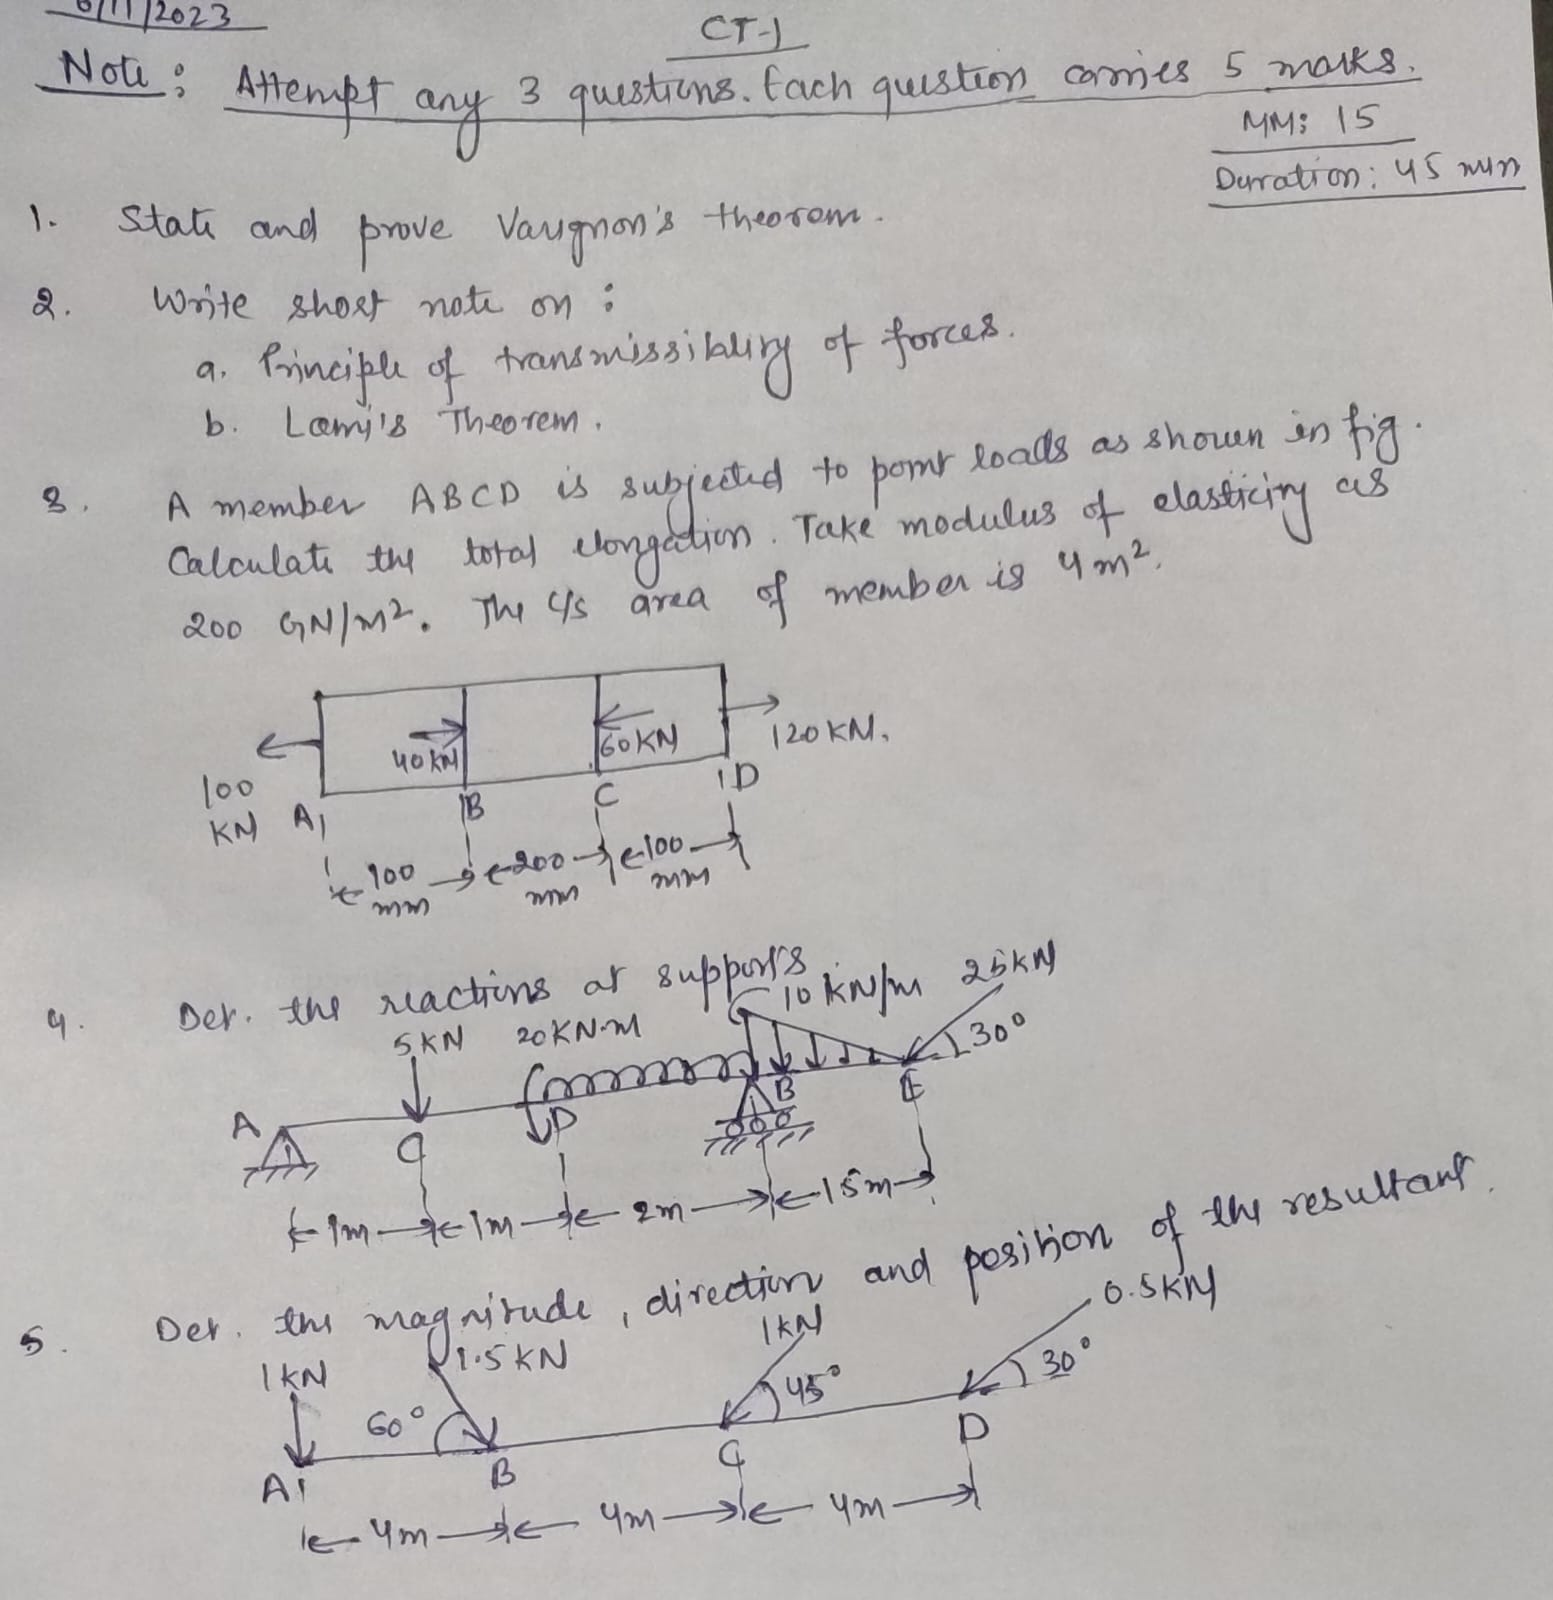 6/11/2023
CT-1
Note: Attempt any 3 questions. Each question carries 5 marks.
MM: 15
Duration: 45 min
1. State and prove Varignon's theorem.
2. Write short note on:
a. Principle of transmissibility of forces.
b. Lami's Theorem.
3. A member ABCD is subjected to point loads as shown in fig.
Calculate the total elongation. Take modulus of elasticity as
200 GN/m². The c/s area of member is 4m².
100 KN
40 KN
60 KN
120 KN.
A B C D
100 mm
200 mm
100 mm
4. Det. the reactions at supports
5 KN 20 KN.m 10 KN/m 25 KN
30°
A C D B E
1m 1m 2m 1.5m
5. Det. the magnitude, direction and position of the resultant.
1 KN 1.5 KN 1 KN 0.5 KN
60° 45° 30°
A B C D
4m 4m 4m